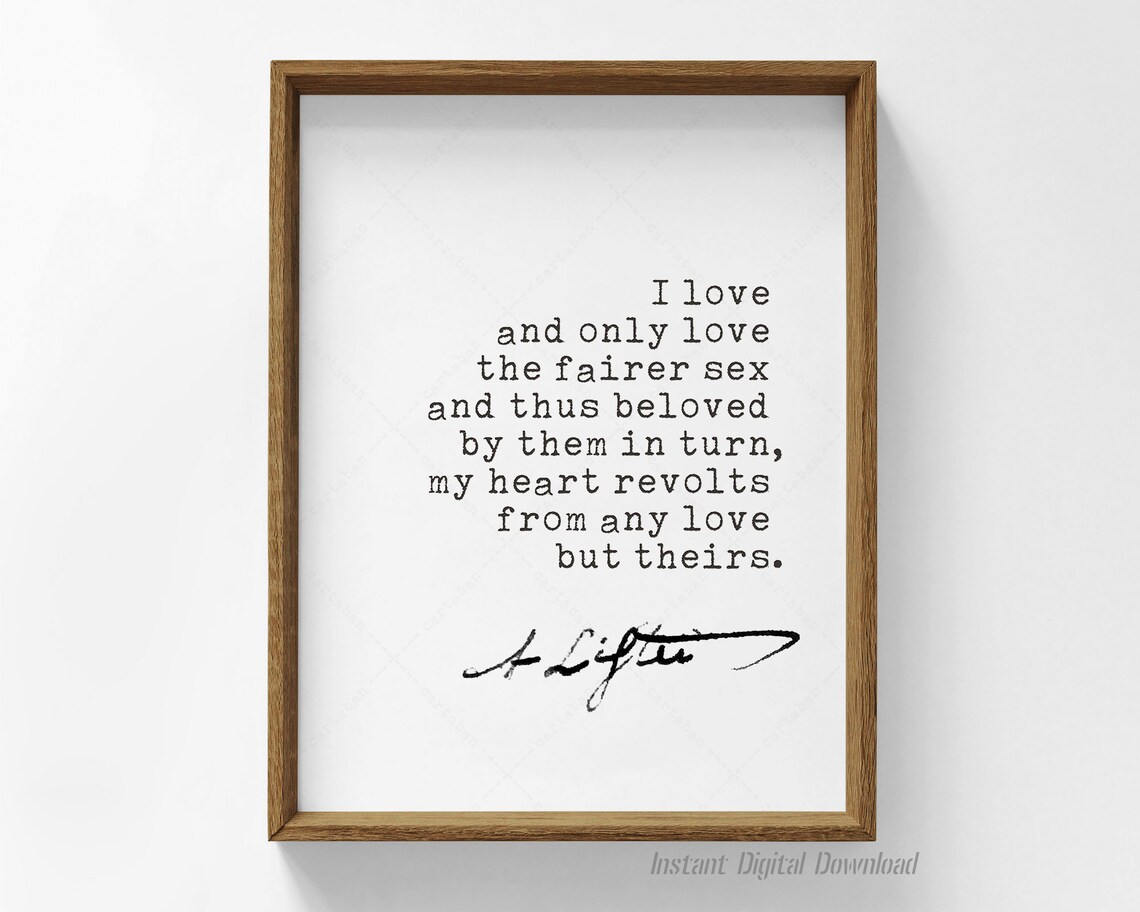 I love
and only love
the fairer sex
and thus beloved
by them in turn,
my heart revolts
from any love
but theirs.
A Lister
Instant Digital Download